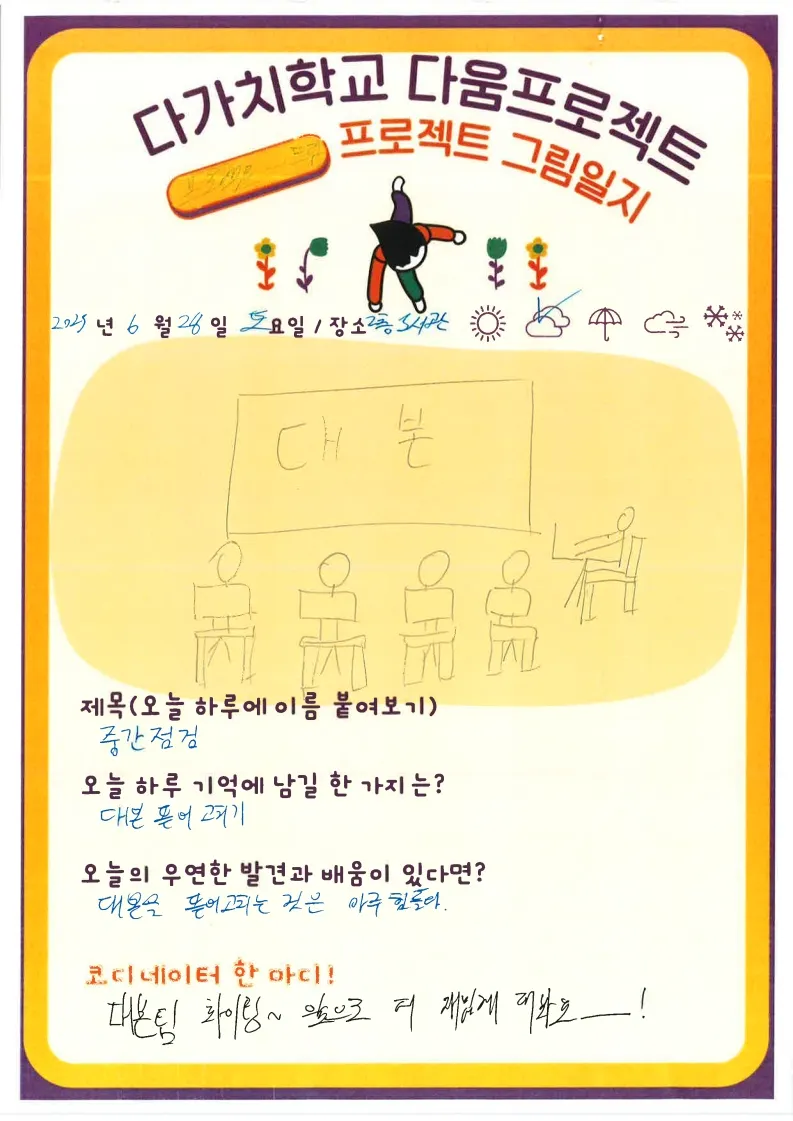 다가치학교 다움프로젝트
프로젝트 그림일지
2025 년 6 월 28 일 토요일 / 장소 2층
대 본
제목(오늘 하루에 이름 붙여보기)
중간점검
오늘 하루 기억에 남길 한 가지는?
대본 뜯어 고치기
오늘의 우연한 발견과 배움이 있다면?
대본을 뜯어고치는 것은 아주 힘들다.
코디네이터 한 마디!
대본팀 화이팅~ 앞으로 더 재밌게 해봐요 !